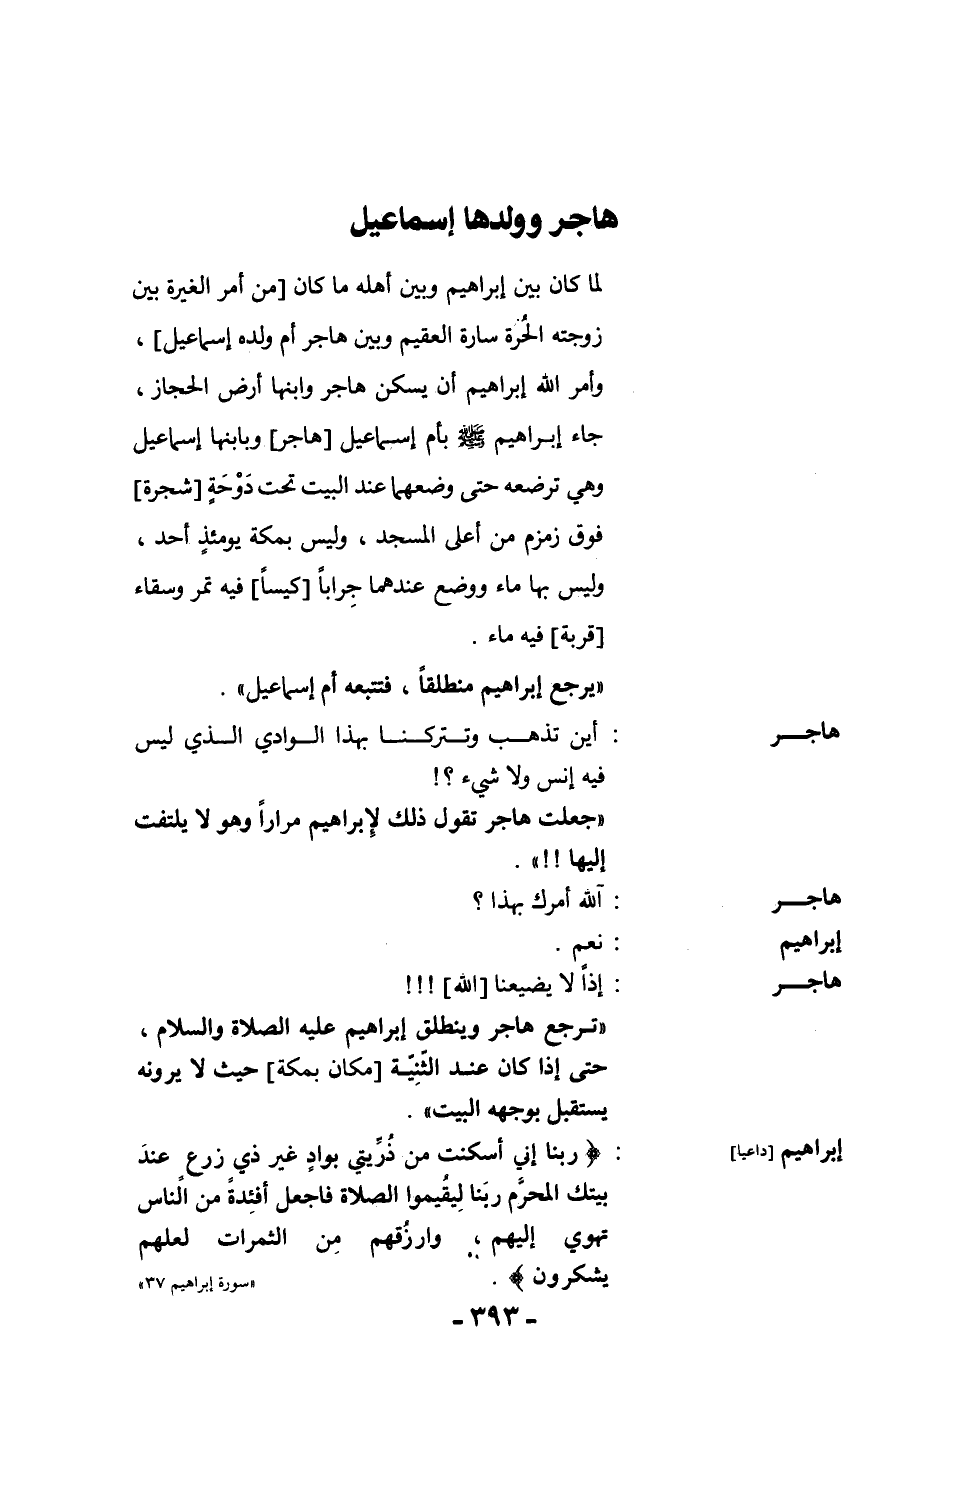 هاجر وولدها إسماعيل
لما كان بين إبراهيم وبين أهله ما كان [من أمر الغيرة بين
زوجته الحُرّة سارة العقيم وبين هاجر أم ولده إسماعيل] ،
وأمر الله إبراهيم أن يسكن هاجر وابنها أرض الحجاز ،
جاء إبراهيم ﷺ بأم إسماعيل [هاجر] وبابنها إسماعيل
وهي ترضعه حتى وضعهما عند البيت تحت دَوْحَةٍ [شجرة]
فوق زمزم من أعلى المسجد ، وليس بمكة يومئذٍ أحد ،
وليس بها ماء ووضع عندهما جِراباً [كيساً] فيه تمر وسقاء
[قربة] فيه ماء .
«يرجع إبراهيم منطلقاً ، فتتبعه أم إسماعيل» .
هاجر : أين تذهب وتتركنا بهذا الوادي الذي ليس
فيه إنس ولا شيء ؟!
«جعلت هاجر تقول ذلك لإبراهيم مراراً وهو لا يلتفت
إليها !!» .
هاجر : آلله أمرك بهذا ؟
إبراهيم : نعم .
هاجر : إذاً لا يضيعنا [الله] !!!
«ترجع هاجر وينطلق إبراهيم عليه الصلاة والسلام ،
حتى إذا كان عند الثّنِيّة [مكان بمكة] حيث لا يرونه
يستقبل بوجهه البيت» .
إبراهيم [داعيا] : ﴿ ربنا إني أسكنت من ذُرِّيتي بوادٍ غير ذي زرع عندَ
بيتك المحرَّم ربَنا لِيقُيموا الصلاة فاجعل أفئِدةً من الناس
تهوي إليهم ، وارزُقهم مِن الثمرات لعلهم
يشكرون ﴾ . «سورة إبراهيم ٣٧»
- ٣٩٣ -